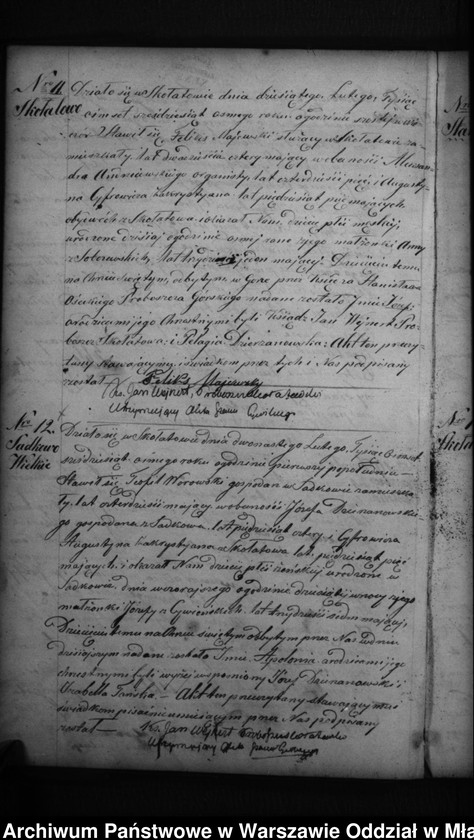 Nro 11.
Skołatowo
Działo się w Skołatowie dnia dziesiątego Lutego, Tysiąc
ośmset sześdziesiąt ósmego roku o godzinie
Stawił się Feliks Majewski służący w Skołatowie za-
mieszkały, lat dwadzieścia cztery mający w obecności
organisty, lat czterdzieści pięć i Augusty-
na Cyfrowicza zakrystyana lat pięćdziesiąt pięć mających,
obydwóch z Skołatowa i okazał Nam dziecię płci męskiej,
urodzone dzisiaj o godzinie ósmej rano z jego małżonki Anny
z lat mającej. Dziecięciu temu
na Chrzcie świętym, odbytym w Górze przez Księdza Stanisława
Proboszcza Górskiego nadane zostało Imię Józef,
a rodzicami jego Chrzestnymi byli Ksiądz Jan Wejnert Pro-
boszcz Skołatowa i Pelagia Dzierzanowska. Akt ten przeczy-
tany stawającemu i świadkom przez tychże i Nas podpisany
został.
Feliks Majewski
Ks. Jan Wejnert, Proboszcz Skołatowski
Utrzymujący Akta Stanu Cywilnego
Nro 12.
Sadkowo
Wielkie
Działo się w Skołatowie dnia dwunastego Lutego, Tysiąc Ośmset
sześdziesiąt ósmego roku o godzinie pierwszej po południu
Stawił się Teofil Worowski gospodarz w Sadkowie zamieszka-
ły, lat czterdzieści mający w obecności Józefa Dzierzanowskie-
go gospodarza z Sadkowa, lat pięćdziesiąt cztery i Cyfrowicza
Augustyna zakrystyana z Skołatowa lat pięćdziesiąt pięć
mających i okazał Nam dziecię płci żeńskiej urodzone w
Sadkowie dnia wczorajszego o godzinie dziesiątej w nocy z jego
małżonki Józefy z lat trzydzieści siedm mającej.
Dziecięciu temu na Chrzcie świętym odbytym przez Nas w dniu
dzisiejszym nadane zostało Imię Apolonia a rodzicami jego
chrzestnymi byli wyżej wspomniany Józef Dzierzanowski i
Izabella Akt ten przeczytany stawającemu i
świadkom pisać nie umiejącym przez Nas podpisany
został
Ks. Jan Wejnert Proboszcz Skołatowski
Utrzymujący Akta Stanu Cywilnego
Archiwum Państwowe w Warszawie Oddział w Mła